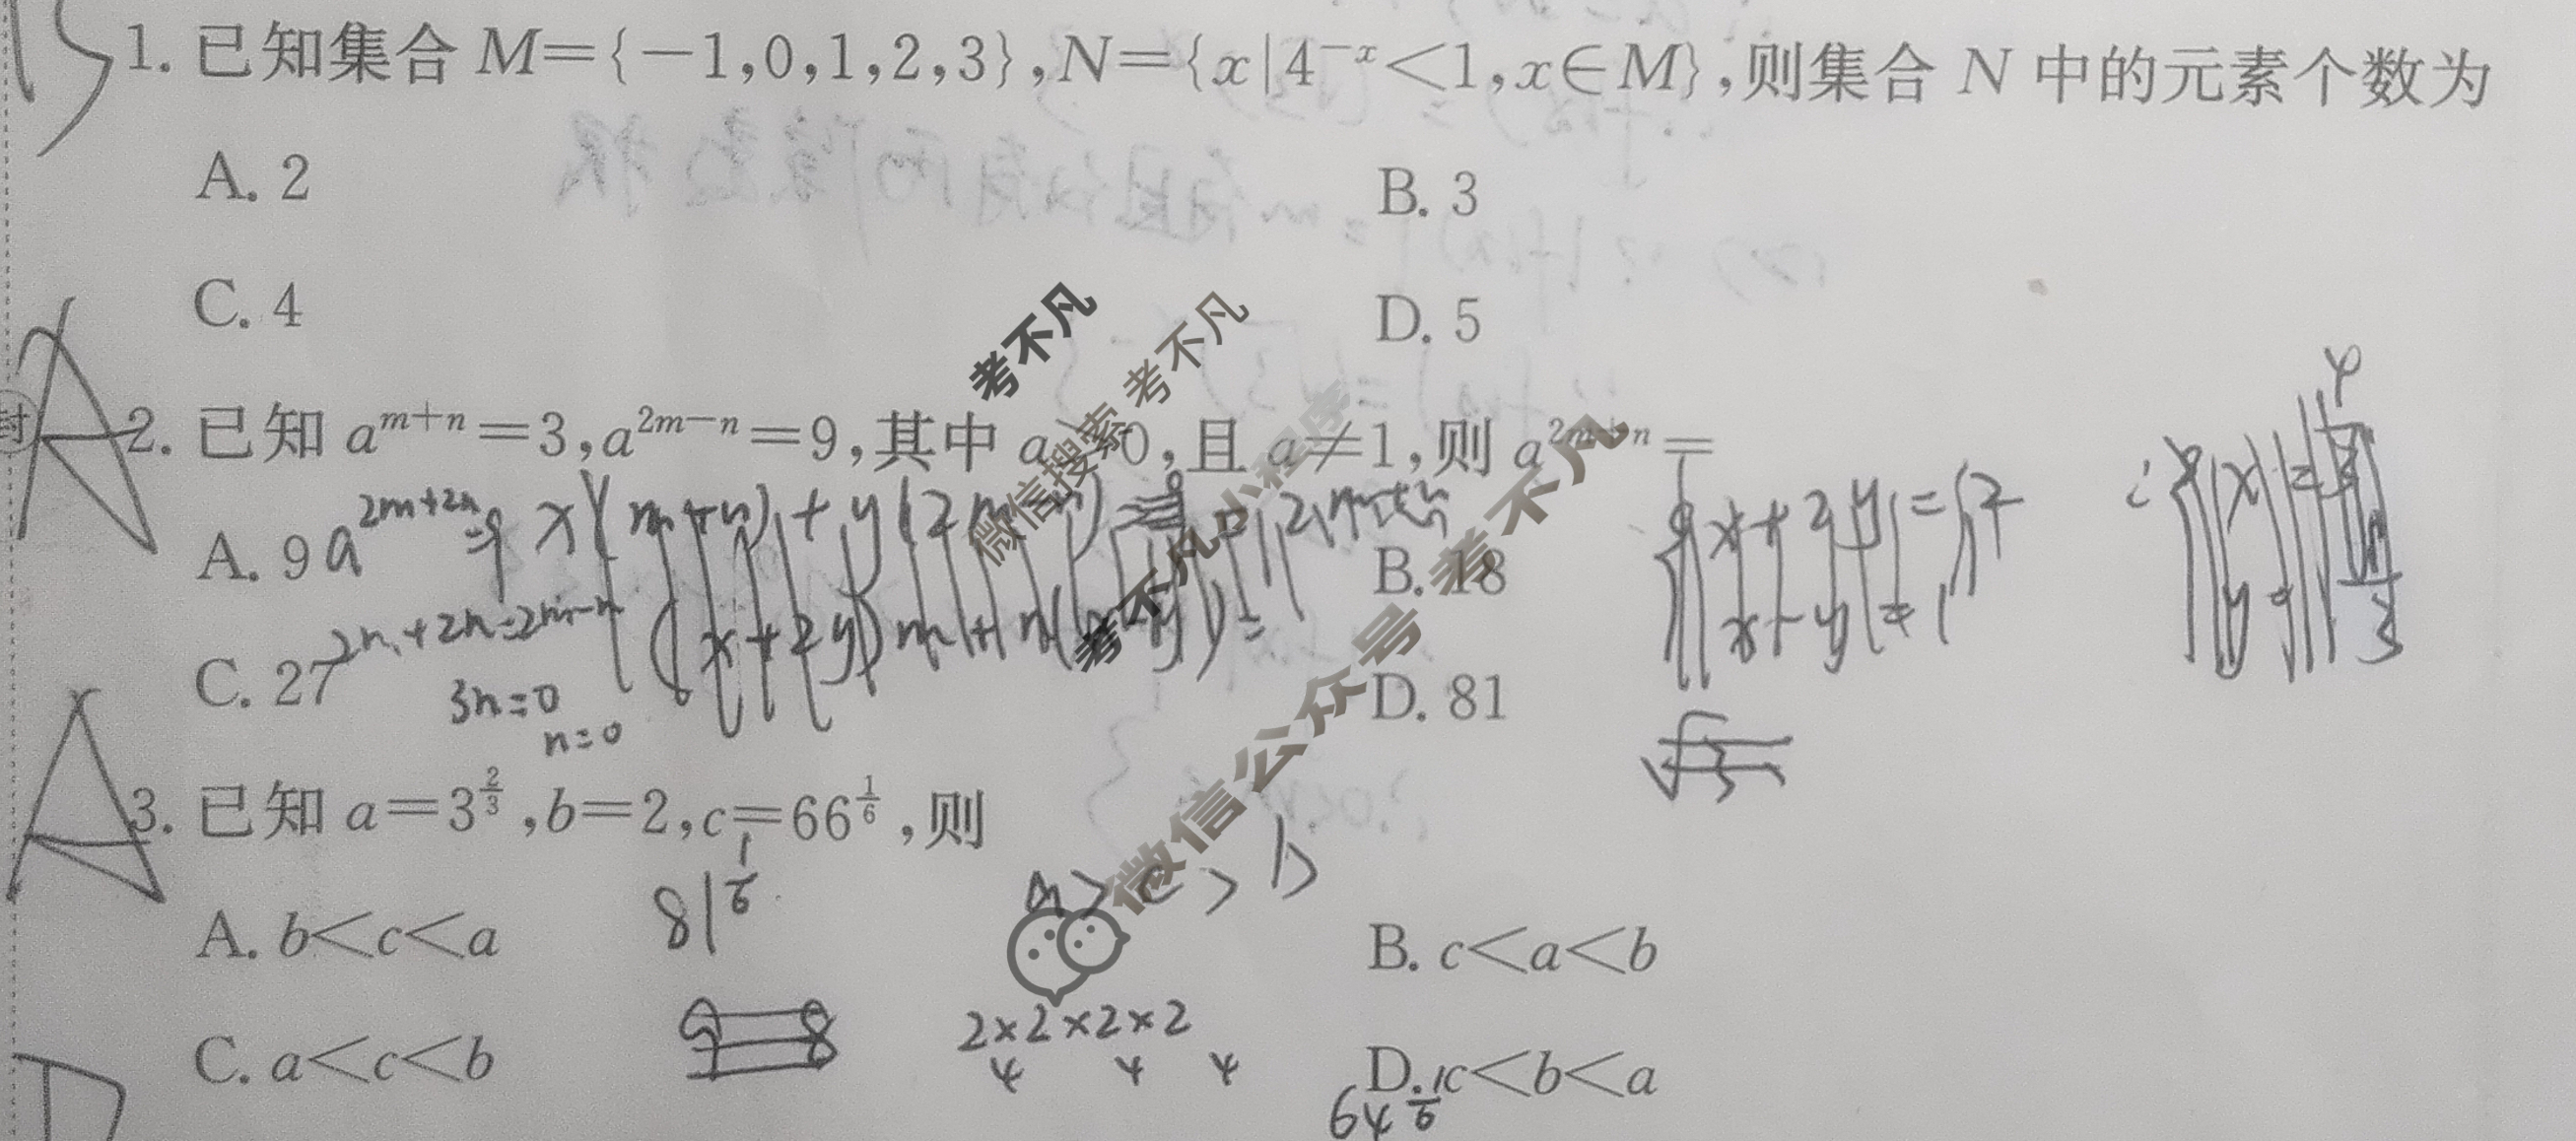 1. 已知集合 M={-1,0,1,2,3},N={x|4^{-x}<1,x∈M},则集合 N 中的元素个数为
A. 2
B. 3
C. 4
D. 5
考不凡
考不凡
A
封
2. 已知 a^{m+n}=3,a^{2m-n}=9,其中 a>0,且 a≠1,则 a^{2m+n}=
微信搜索
小程序
考不凡
A. 9
a^{2m+2n}=9
B. 18
x+2y=2
x-y=1
C. 27
2m+2n=2m-n
(x+2y)m+n(x-y)=
考不凡
D. 81
3n=0
n=0
微信公众号
A
3. 已知 a=3^{\frac{2}{3}},b=2,c=66^{\frac{1}{6}},则
81^{\frac{1}{6}}
a>c>b
A. b<c<a
B. c<a<b
C. a<c<b
9 8
2×2×2×2
4 4 4
D. c<b<a
64^{\frac{1}{6}}